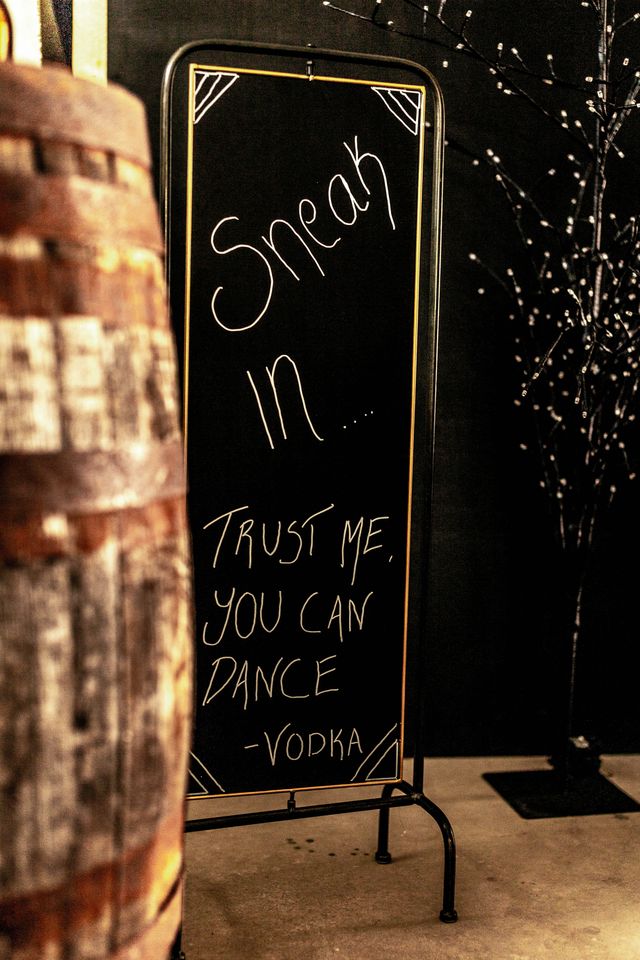 Sneak
in....
TRUST ME,
YOU CAN
DANCE
-VODKA